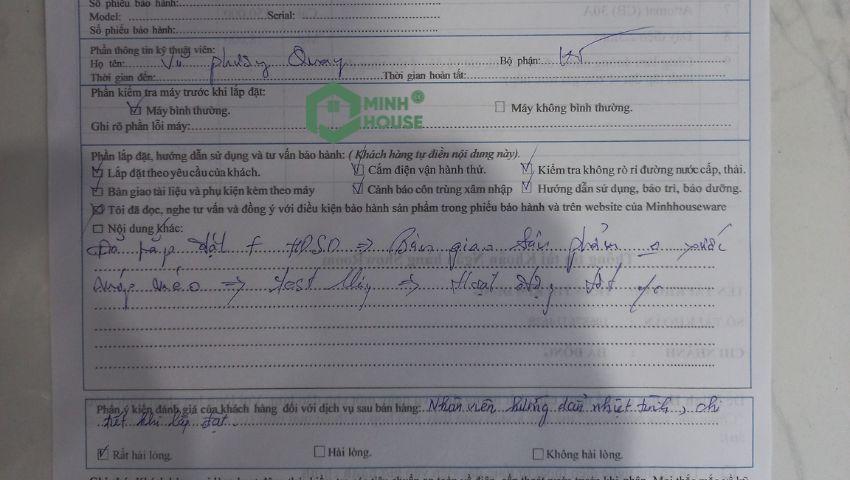 Số phiếu bảo hành:
Model: Serial:
Số phiếu bảo hành:
Phần thông tin kỹ thuật viên:
Họ tên: Vũ Bộ phận:
Thời gian đến: Thời gian hoàn tất:
Phần kiểm tra máy trước khi lắp đặt:
Máy bình thường. Máy không bình thường.
MINH
HOUSE
Ghi rõ phần lỗi máy:
Phần lắp đặt, hướng dẫn sử dụng và tư vấn bảo hành: ( Khách hàng tự điền nội dung này).
Lắp đặt theo yêu cầu của khách. Cắm điện vận hành thử. Kiểm tra không rò rỉ đường nước cấp, thải.
Bàn giao tài liệu và phụ kiện kèm theo máy Cảnh báo côn trùng xâm nhập Hướng dẫn sử dụng, bảo trì, bảo dưỡng.
Tôi đã đọc, nghe tư vấn và đồng ý với điều kiện bảo hành sản phẩm trong phiếu bảo hành và trên website của Minhhouseware
Nội dung khác:
Đã lắp đặt + HDSD => Bàn giao sản phẩm xước
móp méo => test máy => Hoạt động tốt
Phần ý kiến đánh giá của khách hàng đối với dịch vụ sau bán hàng: Nhân viên hướng dẫn nhiệt tình, chi
tiết khi lắp đặt
Rất hài lòng. Hài lòng. Không hài lòng.